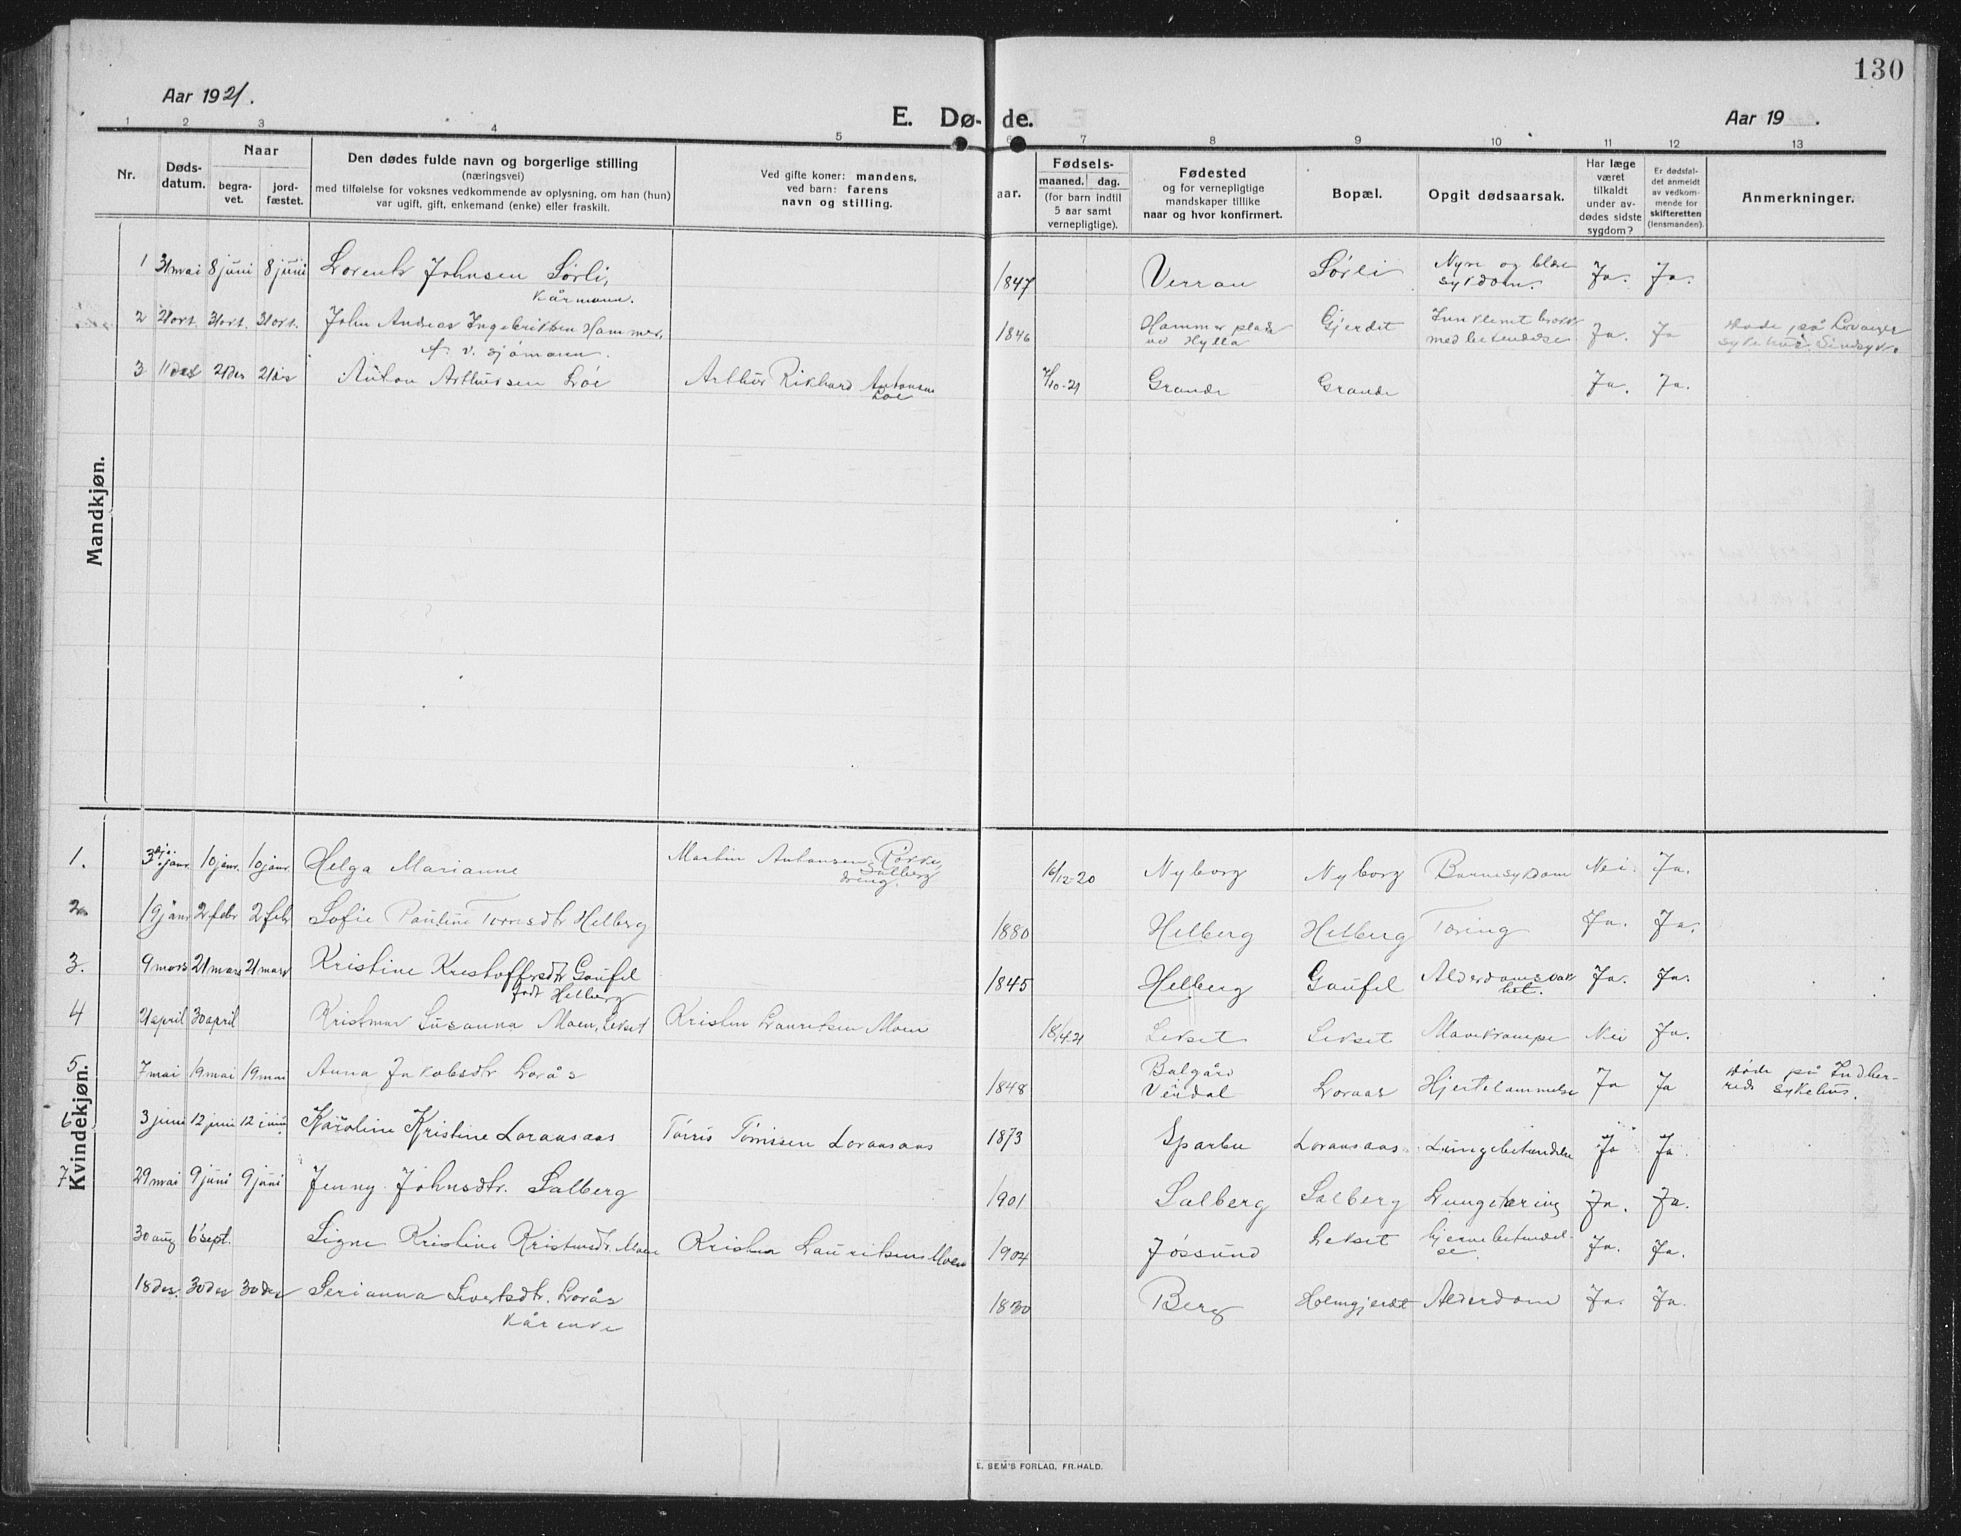 130
Aar 1921.
E. Dø- de.
Aar 19 .
1 2 3 4 5 6 7 8 9 10 11 12 13
Nr.
Døds-
datum.
Naar
begra-
vet.
jord-
fæstet.
Den dødes fulde navn og borgerlige stilling
(næringsvei)
med tilføielse for voksnes vedkommende av oplysning, om han (hun)
var ugift, gift, enkemand (enke) eller fraskilt.
Ved gifte koner: mandens,
ved barn: farens
navn og stilling.
aar.
Fødsels-
maaned. dag.
(for barn indtil
5 aar samt
vernepligtige).
Fødested
og for vernepligtige
mandskaper tillike
naar og hvor konfirmert.
Bopæl.
Opgit dødsaarsak.
Har læge
været
tilkaldt
under av-
dødes sidste
sygdom?
Er dødsfal-
det anmeldt
av vedkom-
mende for
skifteretten
(lensmanden).
Anmerkninger.
Mandkjøn.
1 31 mai 8 juni 8 juni Lorents Johnsen Sørli, 1847 Verran Sørli Nyre og blære Ja. Ja.
kårmann. sykdom.
2 21 okt. 31 okt. 31 okt. John Andreas Ingebriktsen Hammer, 1846 Hammer plads Gjerdet Innklemt brokk Ja. Ja Døde på Levanger
f. v. sjømann. ved Hylla med betendelse sykehus. Sindsyk.
3 11 des 21 des 21 des Anton Arthursen Løe Arthur Rikhard Antonsen 7/10-21 Grande Grande Ja. Ja.
Løe
Kvindekjøn.
1. 3 janr. 10 janr. 10 janr. Helga Marianne Martin Antonsen 16/12-20 Nyborg Nyborg Barnesykdom Nei. Ja.
Salberg
dreng.
2. 19 janr 2 febr 2 febr Sofie Pauline Torresdtr Helberg 1880 Helberg Helberg Tæring Ja. Ja.
3. 9 mars 21 mars 21 mars Kristine Kristoffersdtr Gaufel 1845 Helberg Gaufel Alderdomssvak Ja. Ja.
født Helberg het.
4 21 april 30 april Kristmar Susanna Moen, Lekset Kristen Lauritsen Moen 18/4-21 Lekset Lekset Mavekrampe Nei Ja.
5 7 mai 19 mai 19 mai Anna Jakobsdtr Lorås 1848 Balgård Loraas Hjertelammelse Ja Ja Døde på Indher-
Verdal reds sykehus.
6 3 juni 12 juni 12 juni Karoline Kristine Loraasaas Tørris Tørrissen Loraasaas 1873 Sparbu Loraasaas Lungebetendelse Ja Ja.
7 29 mai 9 juni 9 juni Jenny Johnsdtr. Salberg 1901 Salberg Salberg Lungetæring Ja. Ja.
30 aug 6 sept. Signe Kristine Kristensdtr. Moen Kristen Lauritsens Moen 1904 Jøssund Lekset Hjernebetendel- Ja. Ja.
se.
18 des. 30 des 30 des Serianna Sivertsdtr. Lorås 1830 Berg Holmgjerdet Alderdom Ja. Ja.
kårenke
E. SEM'S FORLAG, FR.HALD.